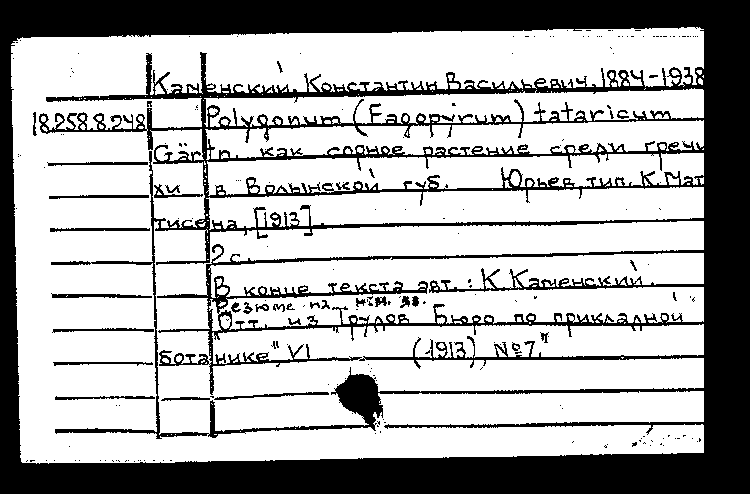 Каменский, Константин Васильевич, 1884-1938
18.258.8.248 Polygonum (Fagopyrum) tataricum
Gärtn. как сорное растение среди гречи
хи в Волынской губ. Юрьев, тип. К. Мат
тисена, [1913].
2 с.
В конце текста авт.: К. Каменский.
Резюме на нем. яз.
"Отт. из "Трудов Бюро по прикладной
ботанике", VI (1913), №7."